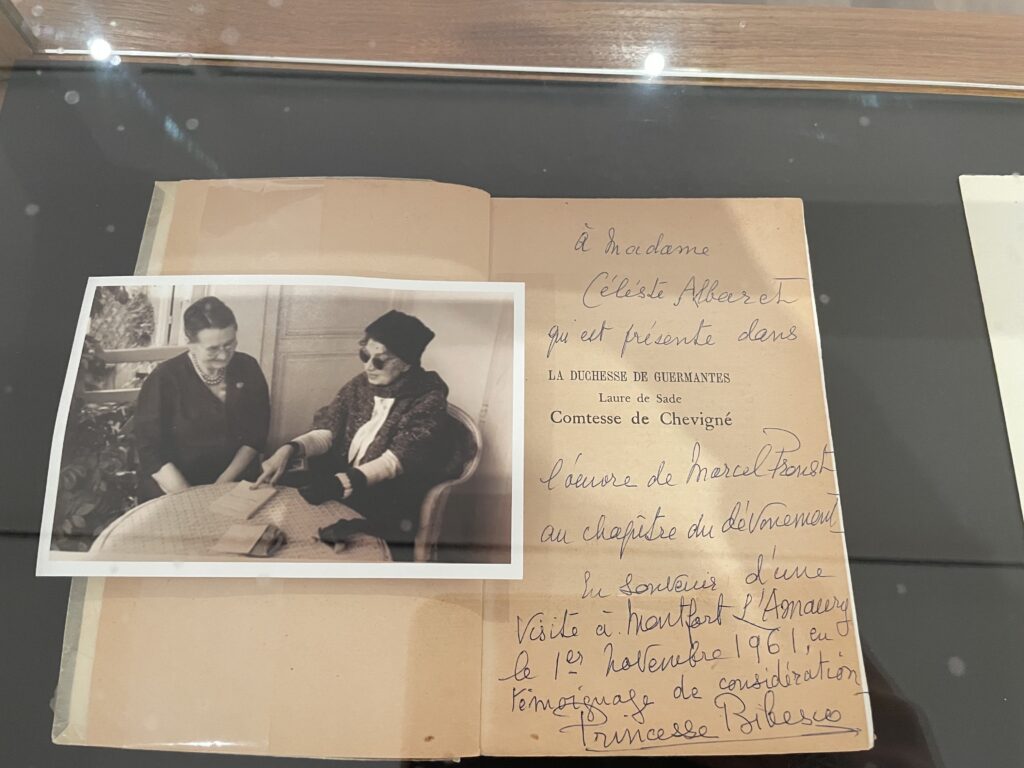 à Madame
Céléste Albaret
qui est présente dans
LA DUCHESSE DE GUERMANTES
Laure de Sade
Comtesse de Chevigné
l'œuvre de Marcel Proust
au chapître du dévouement
En souvenir d'une
visite à Montfort L'Amaury
le 1er novembre 1961, en
témoignage de considération
Princesse Bibesco